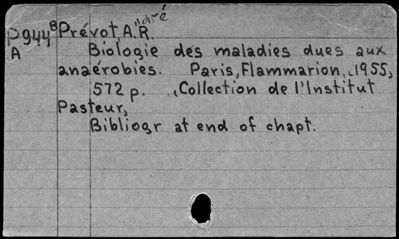 P944B Prévot, A.R. "dré
A Biologie des maladies dues aux
anaérobies. Paris, Flammarion, 1955,
572 p. (Collection de l'Institut
Pasteur,
Bibliogr at end of chapt.